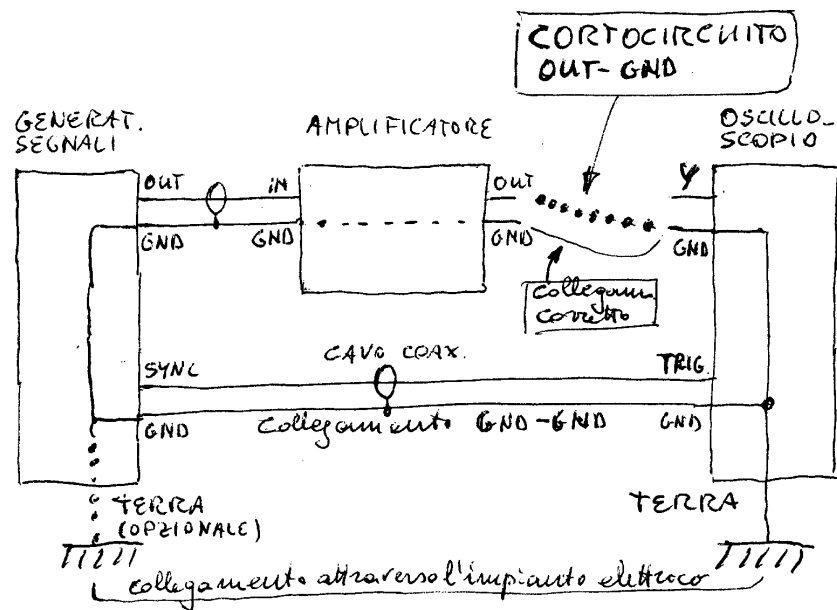 CORTOCIRCUITO
OUT-GND
GENERAT.
SEGNALI
AMPLIFICATORE
OSCILLO-
SCOPIO
OUT
IN
OUT
Y
GND
GND
GND
GND
collegam.
corretto
SYNC
CAVO COAX.
TRIG.
GND
collegamento GND-GND
GND
TERRA
(OPZIONALE)
TERRA
collegamento attraverso l'impianto elettroco